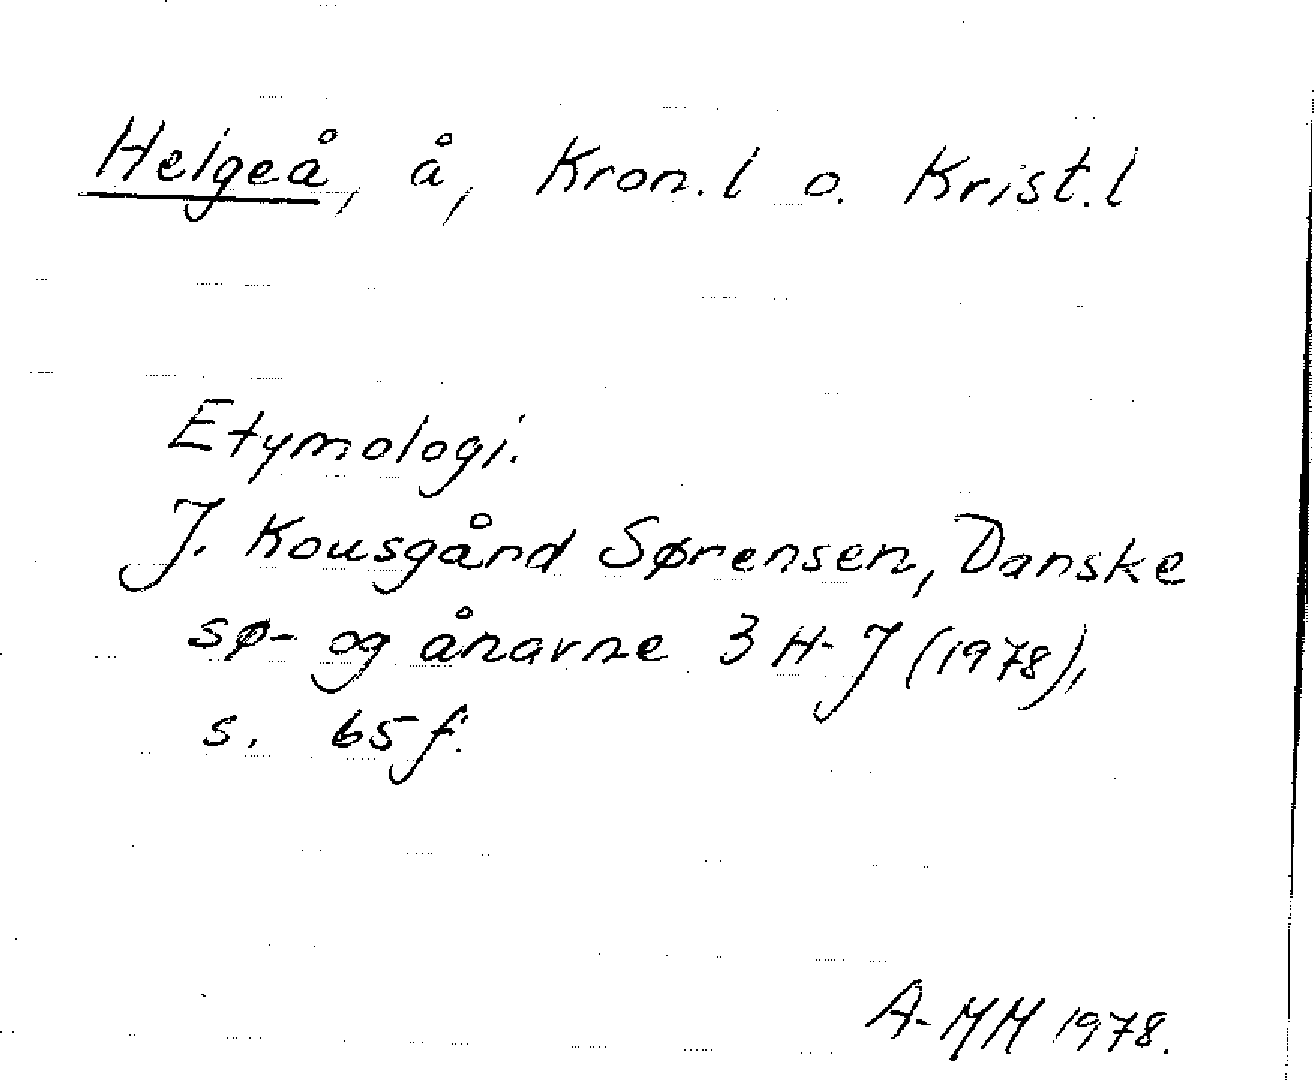 Helgeå, å, Kron.l o. Krist.l
Etymologi.
J. Kousgård Sørensen, Danske
sø- og ånavne 3 H-J (1978),
s. 65 f.
A-MM 1978.